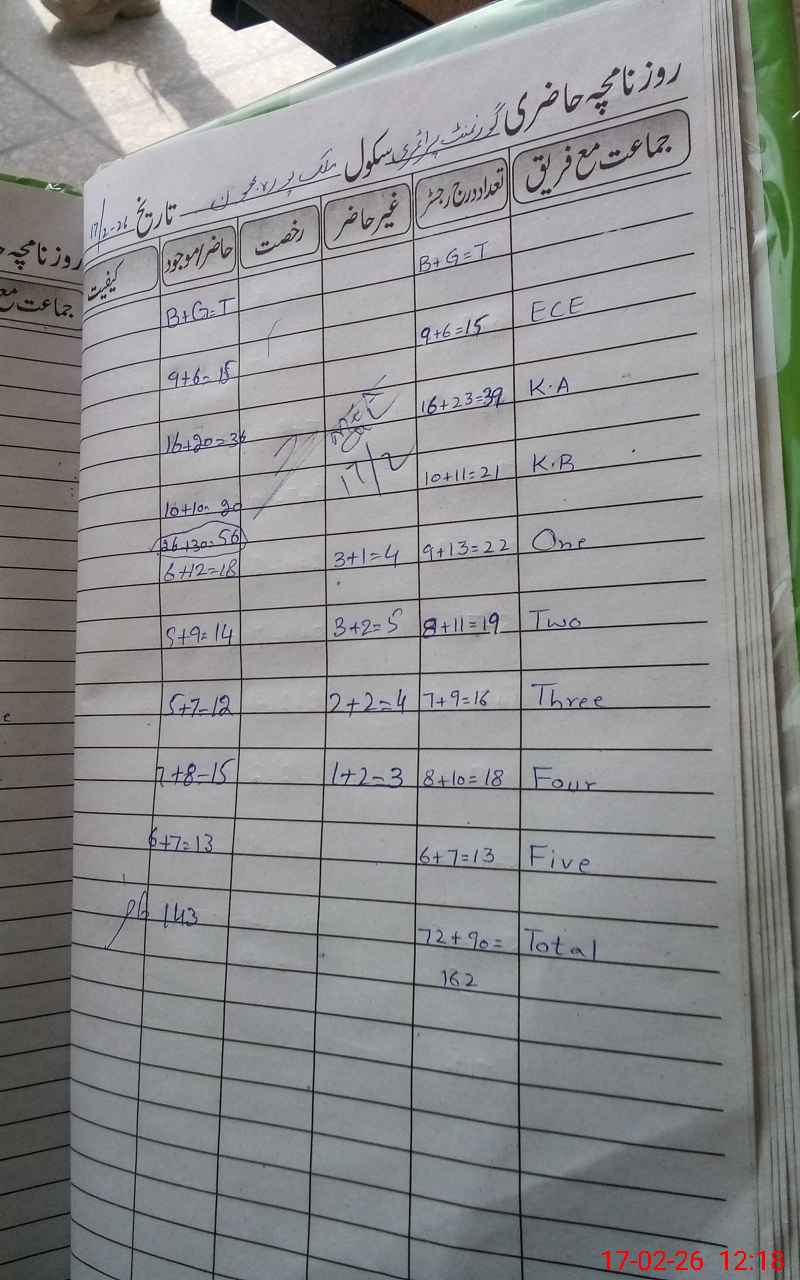 روزنامچہ حاضری گورنمنٹ پرائمری سکول ملک پور تاریخ 17/2-26
جماعت مع فریق تعداد درج رجسٹر غیر حاضر رخصت حاضر/موجود کیفیت
B+G=T B+G=T
ECE 9+6=15 9+6=15
K.A 16+23=39 16+20=36
17/2
K.B 10+11=21 10+10=20
26+30=56
One 9+13=22 3+1=4 6+12=18
Two 8+11=19 3+2=5 5+9=14
Three 7+9=16 2+2=4 5+7=12
Four 8+10=18 1+2=3 7+8=15
Five 6+7=13 6+7=13
Total 72+90= 143
162
روزنامچہ
جماعت مع
17-02-26 12:18